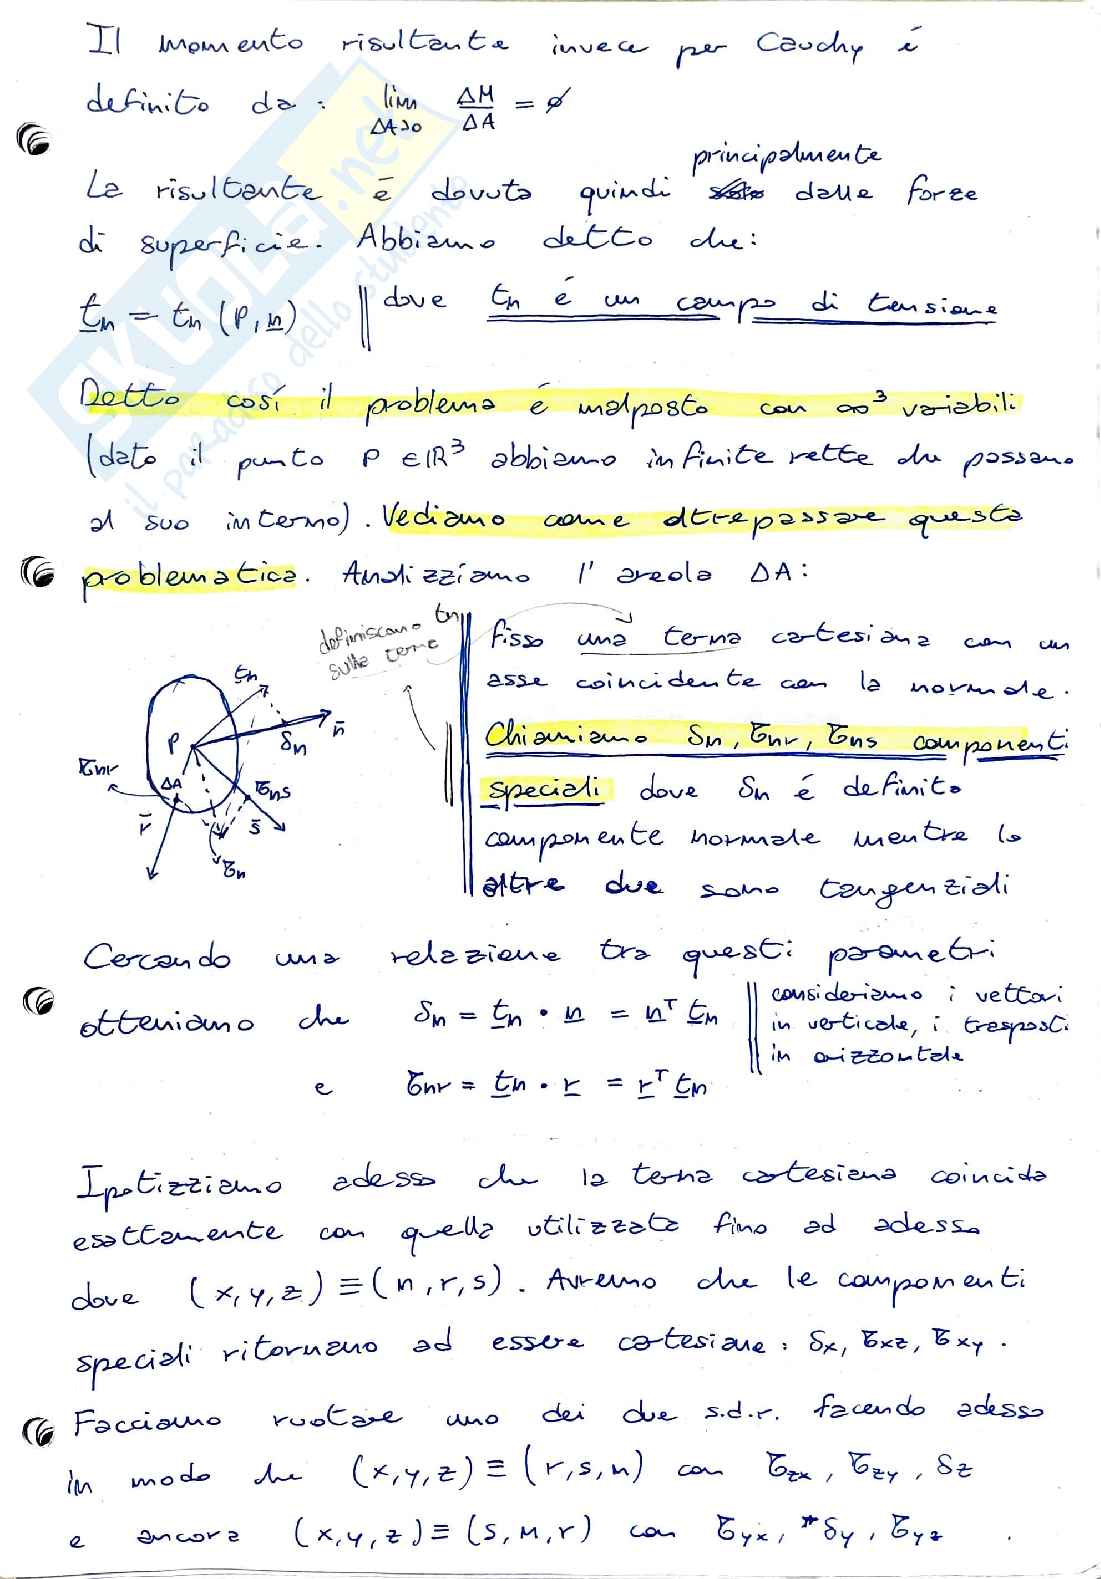 Il momento risultante invece per Cauchy è
definito da: lim ΔA→0 ΔM/ΔA = ∅
principalmente
La risultante è dovuta quindi dalle forze
di superficie. Abbiamo detto che:
tn = tn (P, n) || dove tn è un campo di tensione
Detto così il problema è malposto con ∞³ variabili
(dato il punto P ∈ ℝ³ abbiamo infinite rette che passano
al suo interno). Vediamo come oltrepassare questa
problematica. Analizziamo l'areola ΔA:
definiscono tn
sulla terna
fisso una terna cartesiana con un
asse coincidente con la normale.
Chiamiamo δn, τnr, τns componenti
speciali dove δn è definito
componente normale mentre le
altre due sono tangenziali
tn
n
P
δn
τnr
ΔA
τns
r
s
τn
Cercando una relazione tra questi parametri
otteniamo che δn = tn · n = nᵀ tn
consideriamo i vettori
in verticale, i trasposti
in orizzontale
e τnr = tn · r = rᵀ tn
Ipotizziamo adesso che la terna cartesiana coincida
esattamente con quella utilizzata fino ad adesso
dove (x, y, z) ≡ (n, r, s). Avremo che le componenti
speciali ritornano ad essere cartesiane: δx, τxz, τxy.
Facciamo ruotare uno dei due s.d.r. facendo adesso
in modo che (x, y, z) ≡ (r, s, n) con τzx, τzy, δz
e ancora (x, y, z) ≡ (s, n, r) con τyx, δy, τyz.
SKUOLA.net
il paradiso dello studente